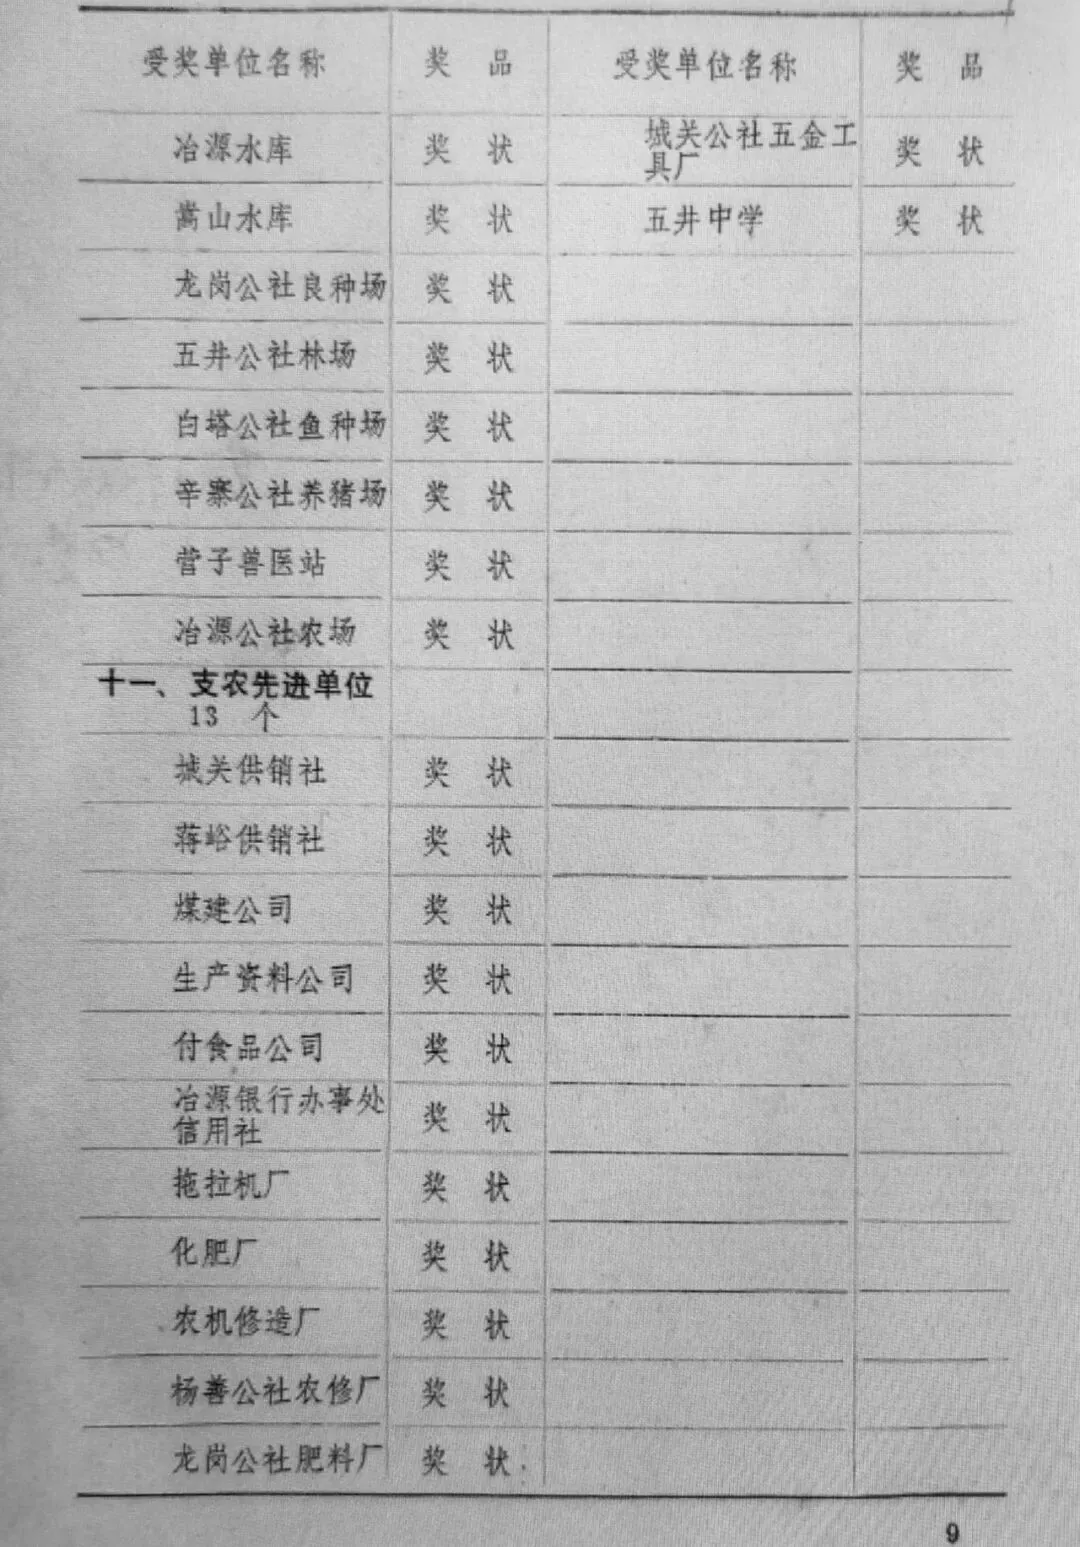 受奖单位名称 奖 品 受奖单位名称 奖 品
冶源水库 奖 状 城关公社五金工
具厂 奖 状
嵩山水库 奖 状 五井中学 奖 状
龙岗公社良种场 奖 状
五井公社林场 奖 状
白塔公社鱼种场 奖 状
辛寨公社养猪场 奖 状
营子兽医站 奖 状
冶源公社农场 奖 状
十一、支农先进单位
13 个
城关供销社 奖 状
蒋峪供销社 奖 状
煤建公司 奖 状
生产资料公司 奖 状
付食品公司 奖 状
冶源银行办事处
信用社 奖 状
拖拉机厂 奖 状
化肥厂 奖 状
农机修造厂 奖 状
杨善公社农修厂 奖 状
龙岗公社肥料厂 奖 状
9